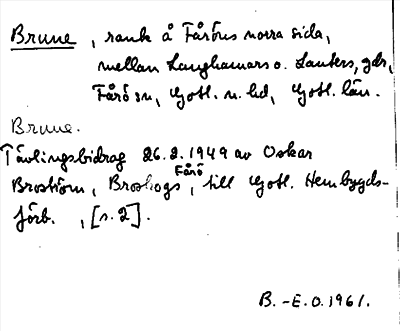 Brune, rauk å Fåröns norra sida,
mellan Langhamars o. Lauters, gdr,
Fårö sn, Gotl. n. hd, Gotl. län.
Brune.
Tävlingsbidrag 26.2.1949 av Oskar
Broström, Broskogs, Fårö, till Gotl. Hembygds-
förb., [s. 2].
B.-E.O. 1961.